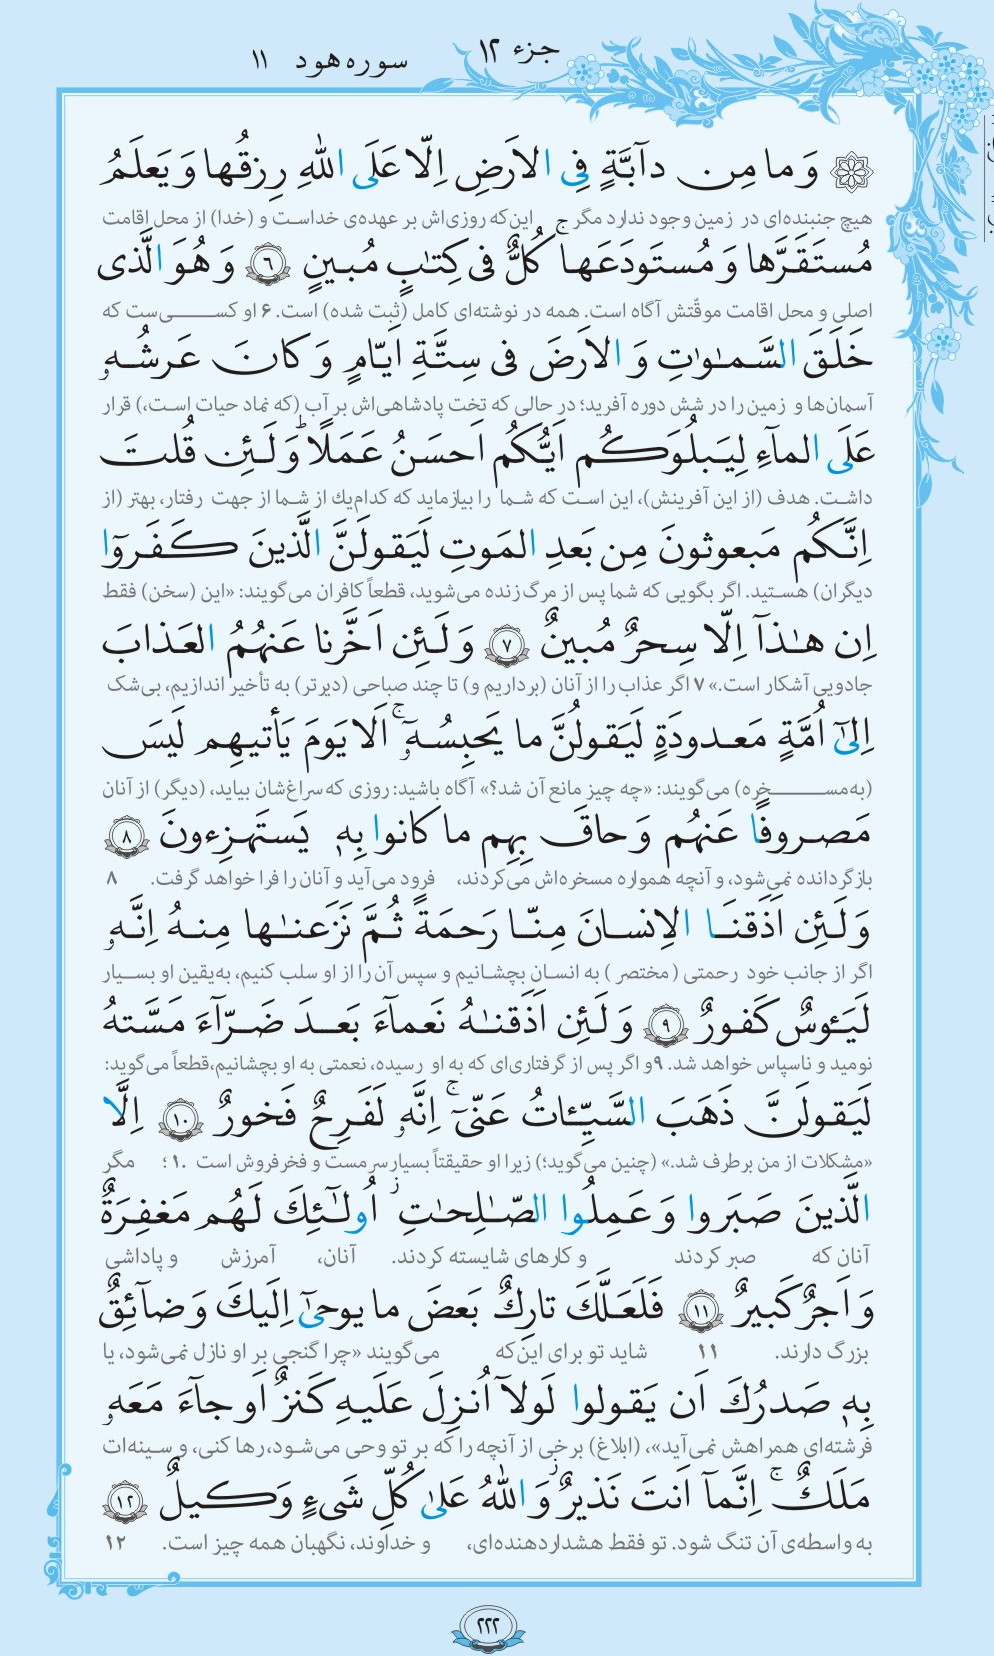 جزء ١٢
سوره هود ١١
وَ ما مِن دآبَّةٍ فِی الاَرضِ اِلّا عَلَی اللهِ رِزقُها وَ یَعلَمُ
هیچ جنبنده‌ای در زمین وجود ندارد مگر این‌که روزی‌اش بر عهده‌ی خداست و (خدا) از محل اقامت
مُستَقَرَّها وَ مُستَودَعَها ۚ کُلٌّ فی کِتٰبٍ مُبینٍ ٦ وَ هُوَ الَّذی
اصلی و محل اقامت موقّتش آگاه است. همه در نوشته‌ای کامل (ثبت شده) است. ۶ او کسی‌ست که
خَلَقَ السَّمٰوٰتِ وَ الاَرضَ فی سِتَّةِ اَیّامٍ وَ کانَ عَرشُهٗ
آسمان‌ها و زمین را در شش دوره آفرید؛ در حالی که تخت پادشاهی‌اش بر آب (که نماد حیات است،) قرار
عَلَی المآءِ لِیَبلُوَکُم اَیُّکُم اَحسَنُ عَمَلًا ؕ وَ لَئِن قُلتَ
داشت. هدف (از این آفرینش)، این است که شما را بیازماید که کدام‌یك از شما از جهت رفتار، بهتر (از
اِنَّکُم مَبعوثونَ مِن بَعدِ المَوتِ لَیَقولَنَّ الَّذینَ کَفَروۤا
دیگران) هستید. اگر بگویی که شما پس از مرگ زنده می‌شوید، قطعاً کافران می‌گویند: «این (سخن) فقط
اِن هٰذاۤ اِلّا سِحرٌ مُبینٌ ٧ وَ لَئِن اَخَّرنا عَنهُمُ العَذابَ
جادویی آشکار است.» ۷ اگر عذاب را از آنان (برداریم و) تا چند صباحی (دیرتر) به تأخیر اندازیم، بی‌شک
اِلیٰۤ اُمَّةٍ مَعدودَةٍ لَیَقولُنَّ ما یَحبِسُهٗۤ ۚ اَلا یَومَ یَأتیهِم لَیسَ
(به‌مسخره) می‌گویند: «چه چیز مانع آن شد؟» آگاه باشید: روزی که سراغ‌شان بیاید، (دیگر) از آنان
مَصروفًا عَنهُم وَ حاقَ بِهِم ما کانوا بِهٖ یَستَهزِءونَ ٨
بازگردانده نمی‌شود، و آنچه همواره مسخره‌اش می‌کردند، فرود می‌آید و آنان را فرا خواهد گرفت. ۸
وَ لَئِن اَذَقنَا الاِنسانَ مِنّا رَحمَةً ثُمَّ نَزَعنٰها مِنهُ اِنَّهٗ
اگر از جانب خود رحمتی (مختصر) به انسان بچشانیم و سپس آن را از او سلب کنیم، به‌یقین او بسیار
لَیَئوسٌ کَفورٌ ٩ وَ لَئِن اَذَقنٰهُ نَعمآءَ بَعدَ ضَرّآءَ مَسَّتهُ
نومید و ناسپاس خواهد شد. ۹ و اگر پس از گرفتاری‌ای که به او رسیده، نعمتی به او بچشانیم،قطعاً می‌گوید:
لَیَقولَنَّ ذَهَبَ السَّیِّـٔاتُ عَنّیۤ ۚ اِنَّهٗ لَفَرِحٌ فَخورٌ ١٠ اِلَّا
«مشکلات از من برطرف شد.» (چنین می‌گوید؛) زیرا او حقیقتاً بسیار سرمست و فخرفروش است ۱۰؛ مگر
الَّذینَ صَبَروا وَ عَمِلُوا الصّٰلِحٰتِ ز اُولٰٓئِکَ لَهُم مَغفِرَةٌ
آنان که صبر کردند و کارهای شایسته کردند. آنان، آمرزش و پاداشی
وَ اَجرٌ کَبیرٌ ١١ فَلَعَلَّکَ تارِکٌ بَعضَ ما یوحیٰۤ اِلَیکَ وَ ضآئِقٌ
بزرگ دارند. ۱۱ شاید تو برای این‌که می‌گویند «چرا گنجی بر او نازل نمی‌شود، یا
بِهٖ صَدرُکَ اَن یَقولوا لَولاۤ اُنزِلَ عَلَیهِ کَنزٌ اَو جآءَ مَعَهٗ
فرشته‌ای همراهش نمی‌آید»، (ابلاغ) برخی از آنچه را که بر تو وحی می‌شود،رها کنی، و سینه‌ات
مَلَکٌ ۚ اِنَّماۤ اَنتَ نَذیرٌ ز وَ اللهُ عَلیٰ کُلِّ شَیءٍ وَکیلٌ ١٢
به واسطه‌ی آن تنگ شود. تو فقط هشداردهنده‌ای، و خداوند، نگهبان همه چیز است. ۱۲
٢٢٢